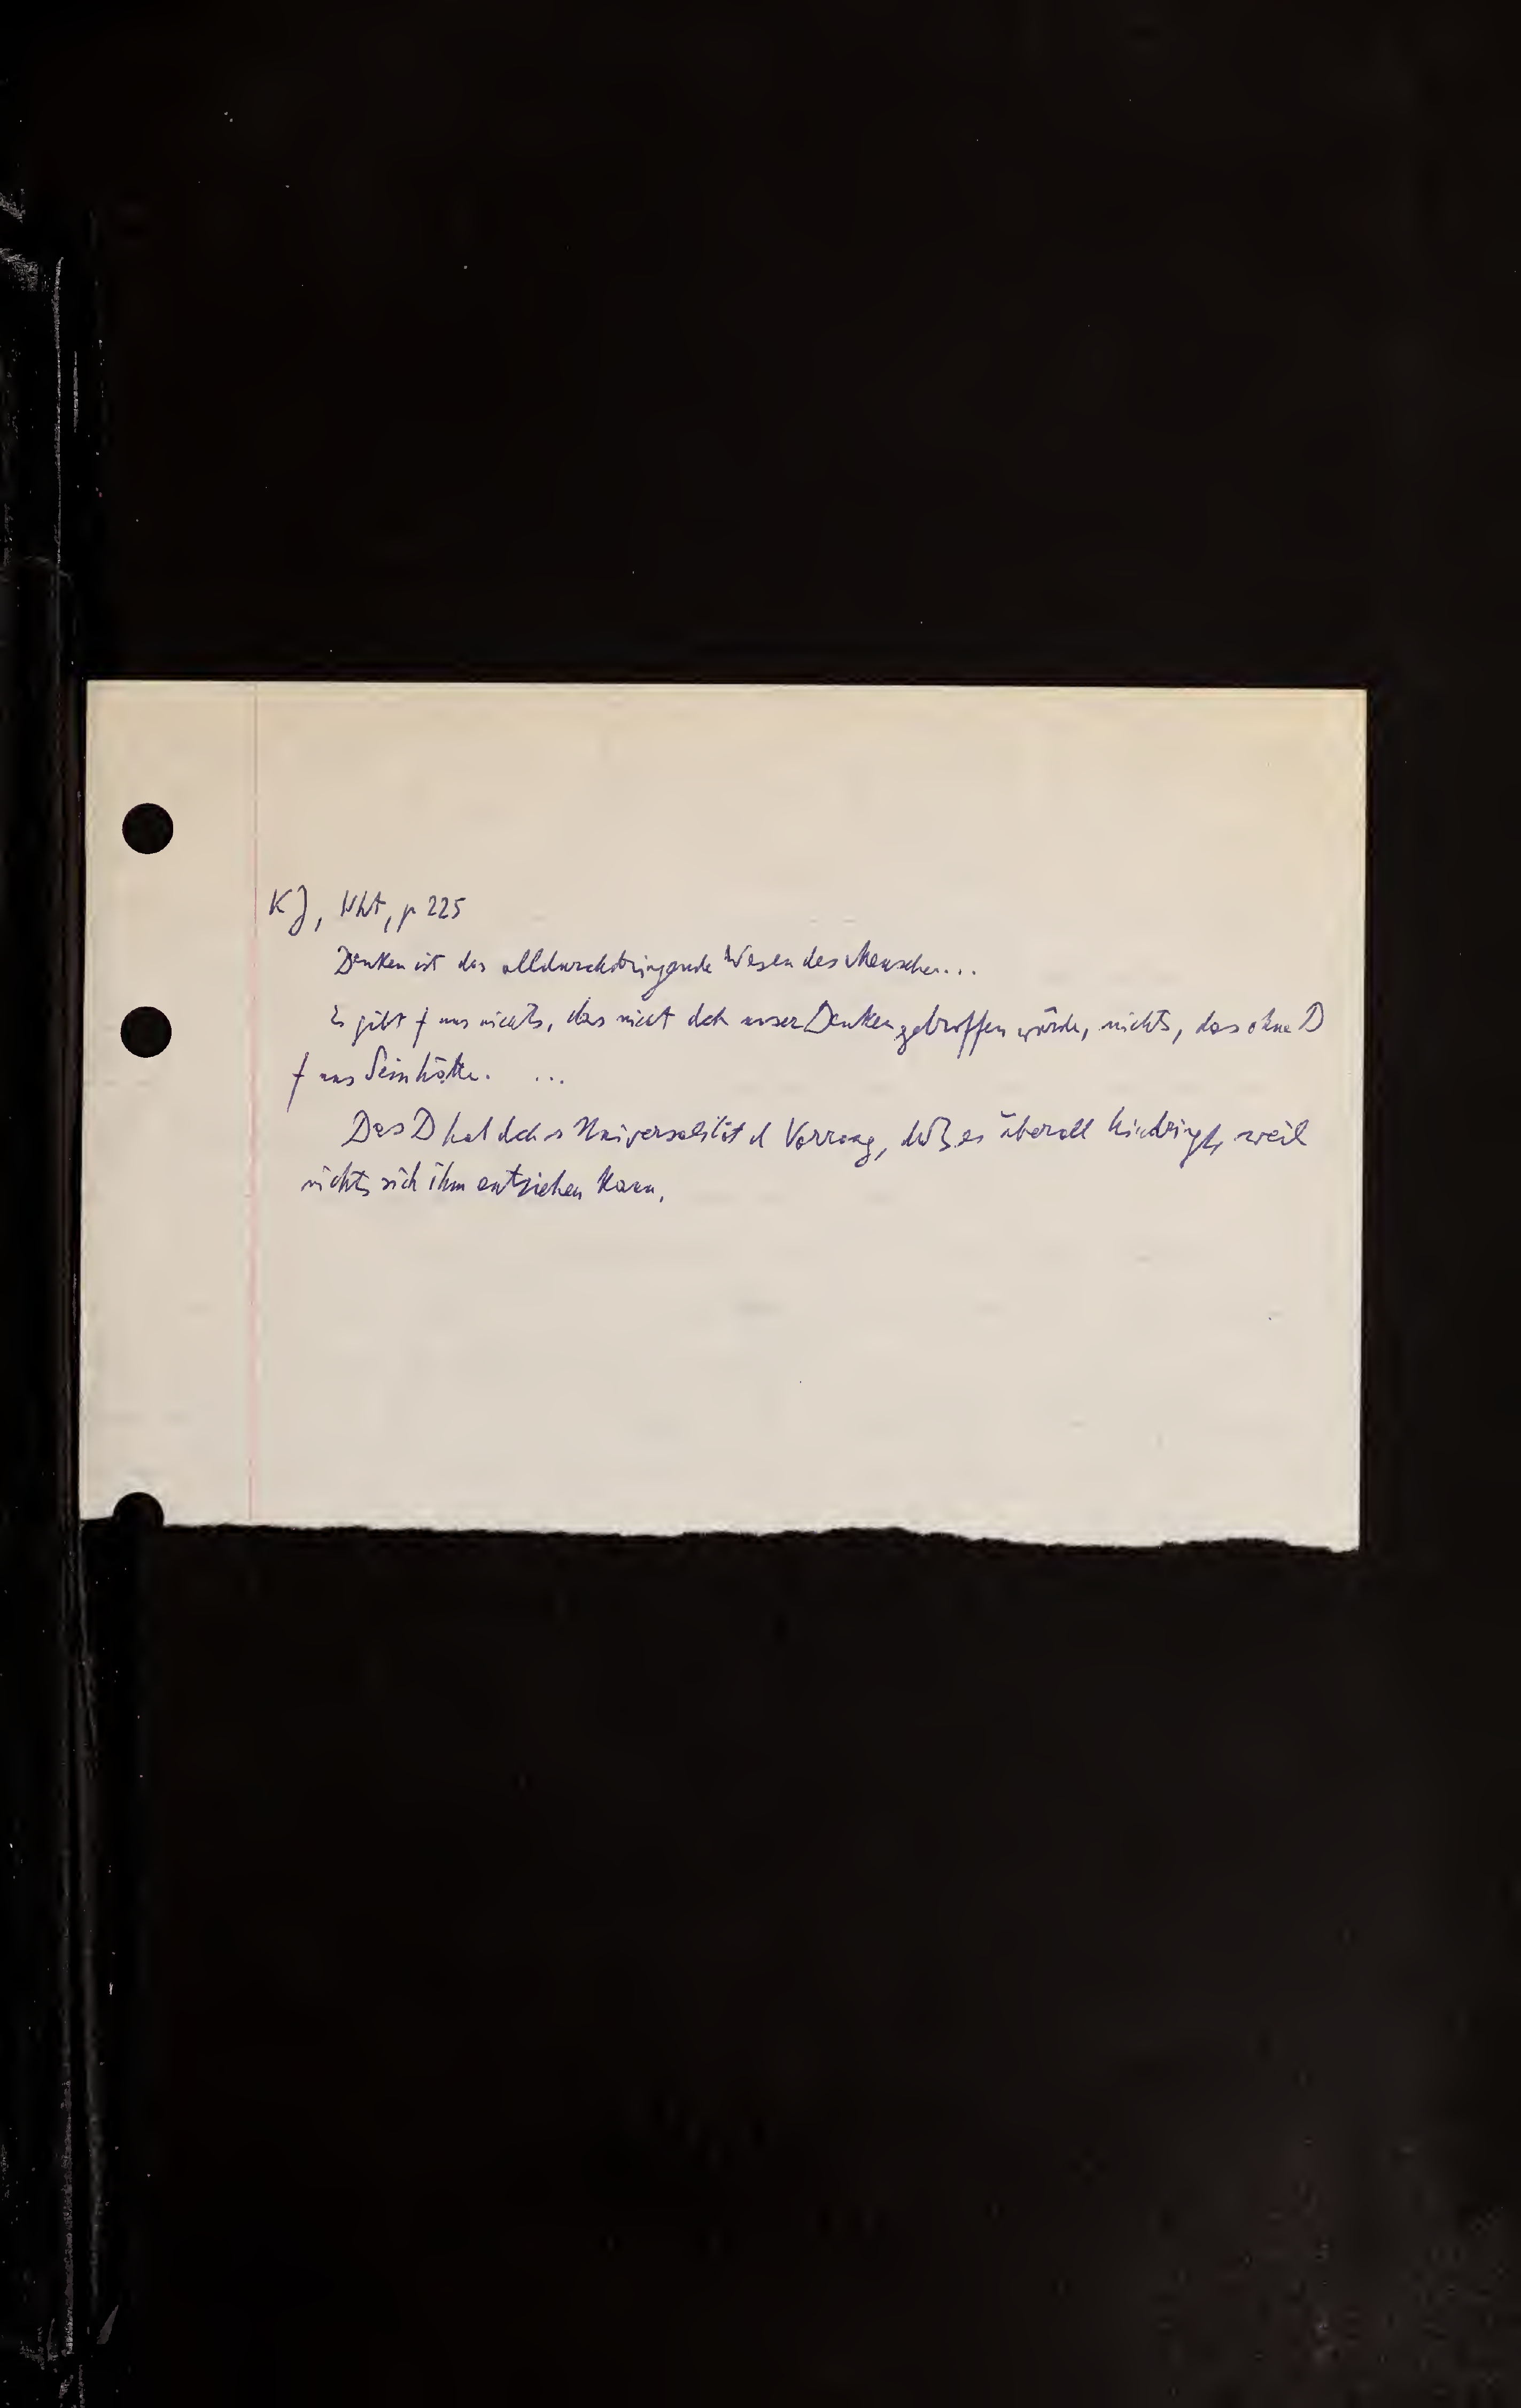 KJ, Wht, p 225
Denken ist das alldurchdringende Wesen des Menschen...
Es gibt f uns nichts, das nicht dch unser Denken getroffen würde, nichts, das ohne D
f uns Sein hätte. ...
Das D hat dch s Universalität d Vorrang, daß es überall hindringt, weil
nichts sich ihm entziehen kann.